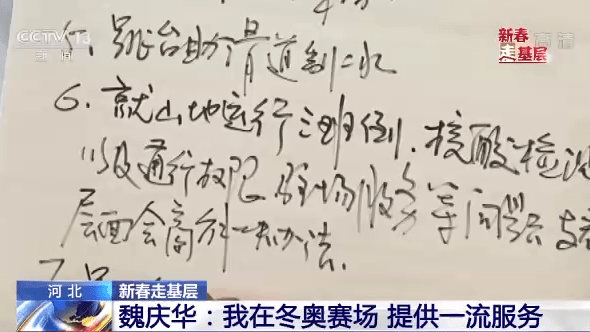 CCTV 13
新闻
高清
新春
走基层
跳台助滑道制冰
6.就山地运行三班倒.核酸检测
以及通行权限 驻场服务等问题
层面会商 办法.
河北
新春走基层
魏庆华：我在冬奥赛场 提供一流服务